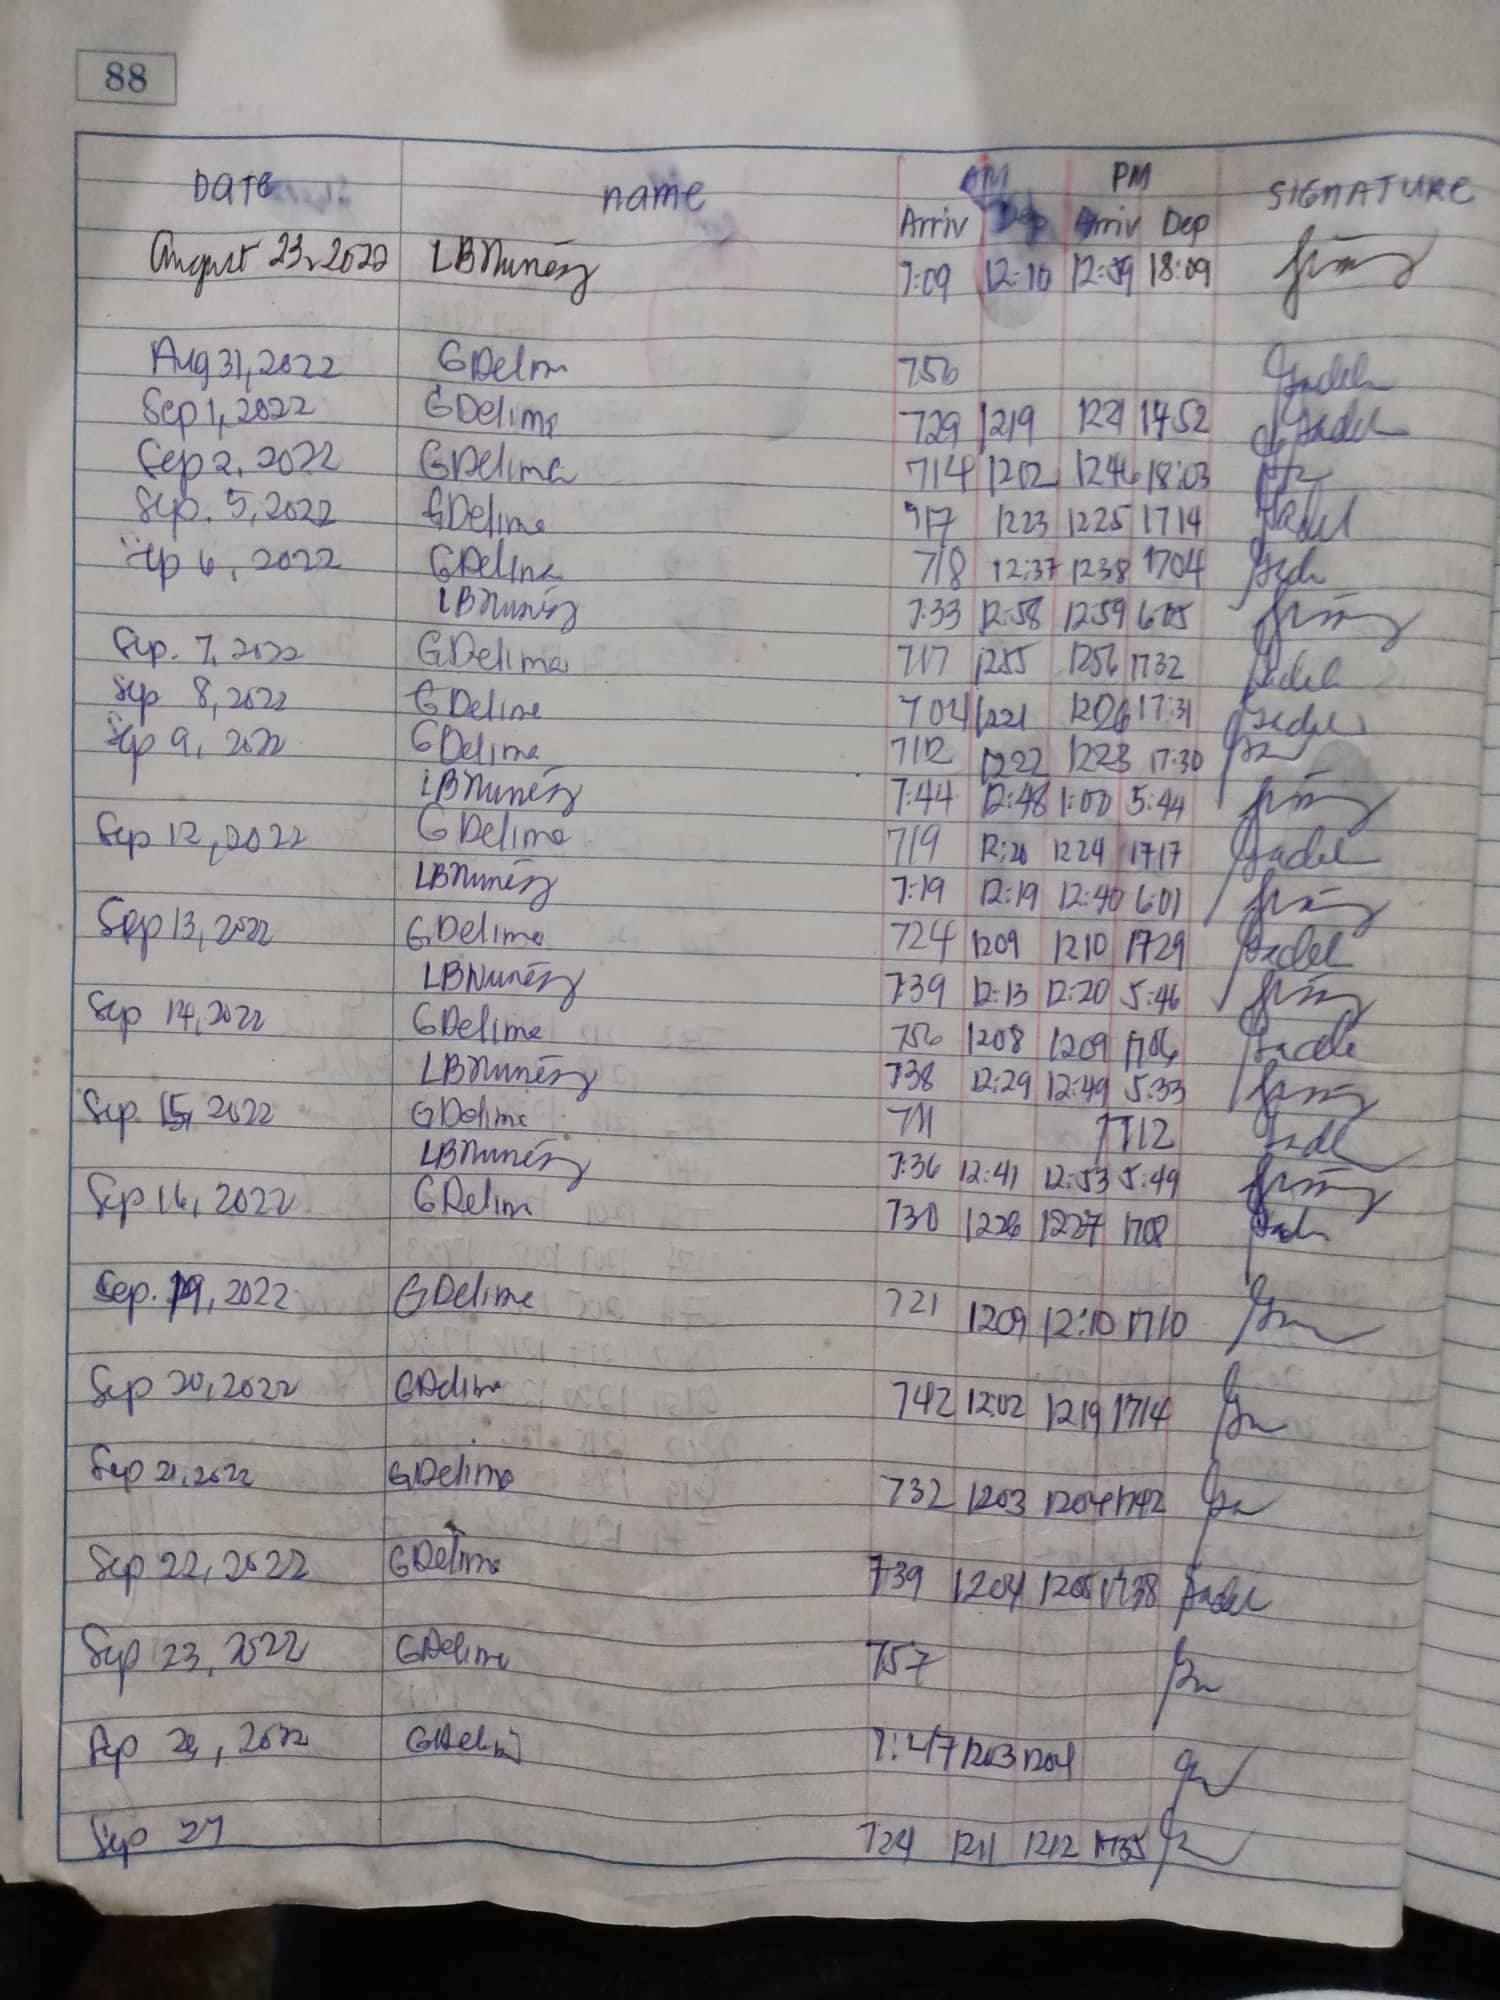 88
AM PM
DATE name Arriv Dep Arriv Dep SIGNATURE
August 23, 2022 LBNuñez 7:09 12:10 12:59 18:09
Aug 31, 2022 GDelim 756
Sep 1, 2022 GDelima 729 1219 1221 1752
Sep 2, 2022 GDelima 714 1202 1246 18:03
Sep. 5, 2022 GDelima 717 1223 1225 1714
Sep 6, 2022 GDelima 718 12:37 1238 1704
LBNuñez 7:33 12:58 12:59 6:05
Sep. 7, 2022 GDelima 717 1255 1256 1732
Sep 8, 2022 GDelima 704 1221 1226 17:31
Sep 9, 2022 GDelima 7:12 1222 1223 17:30
LBNuñez 7:44 12:48 1:00 5:44
Sep 12, 2022 GDelima 719 12:20 1224 1717
LBNuñez 7:19 12:19 12:40 6:01
Sep 13, 2022 GDelima 724 1209 1210 1729
LBNuñez 7:39 12:13 12:20 5:46
Sep 14, 2022 GDelima 756 1208 1209 1706
LBNuñez 738 12:29 12:49 5:33
Sep. 15, 2022 GDelima 711 1712
LBNuñez 7:36 12:41 12:53 5:49
Sep 16, 2022 GDelim 730 1226 1227 1708
Sep. 19, 2022 GDelima 721 1209 12:10 1710
Sep 20, 2022 GDelima 742 12:02 1219 1714
Sep 21, 2022 GDelima 732 1203 1204 1742
Sep 22, 2022 GDelima 739 1204 1205 1738
Sep 23, 2022 GDelima 757
Sep 2, 2022 GDelim 7:47 1203 1204
Sep 27 724 1211 1212 1735